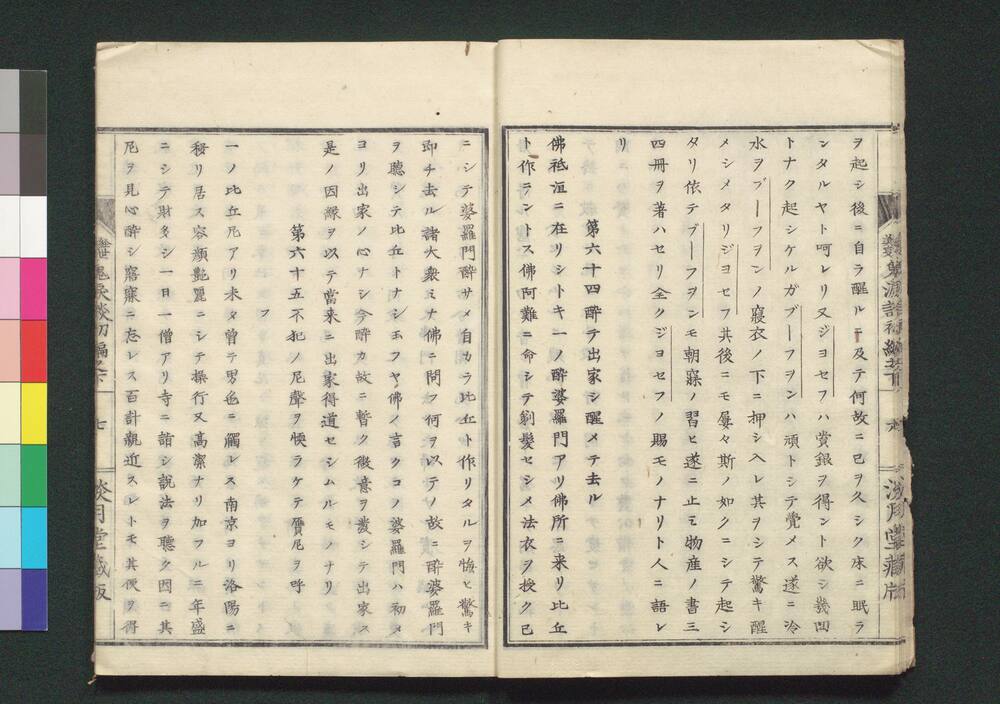 ヲ起シ後ニ自ラ醒ルニ及テ何故ニ己ヲ久シク床ニ眠ラ
ンタルヤト呵レリ又ジヨセフハ賞銀ヲ得ント欲シ幾回
トナク起シケルガブーフヲンハ頑トシテ覺メス遂ニ冷
水ヲブーフヲンノ寢衣ノ下ニ押シ入レ其ヲシテ驚キ醒
メシメタリジヨセフ其後ニモ屢々斯ノ如クニシテ起シ
タリ依テブーフヲンモ朝寐ノ習ヒ遂ニ止ミ物産ノ書三
四冊ヲ著ハセリ全クジヨセフノ賜モノナリト人ニ語レ
リ
第六十四醉テ出家シ醒メテ去ル
佛祇洹ニ在リシトキ一ノ醉婆羅門アリ佛所ニ来リ比丘
ト作ラントス佛阿難ニ命シテ剃髮セシメ法衣ヲ授ク已
ニシテ婆羅門醉サメ自カラ比丘ト作リタルヲ悔ヒ驚キ
即チ去ル諸大衆ミナ佛ニ問フ何ヲ以テノ故ニ醉婆羅門
ヲ聽シテ比丘トナシ玉フヤ佛ノ言クコノ婆羅門ハ初メ
ヨリ出家ノ心ナシ今醉カ故ニ暫ク微意ヲ發シテ出家ス
是ノ因縁ヲ以テ當来ニ出家得道セシムルモノナリ
第六十五不犯ノ尼聲ヲ揚ラケテ贋尼ヲ呼
フ
一ノ比丘尼アリ未タ曾テ男色ニ觸レス南京ヨリ洛陽ニ
移リ居ス容顔艶麗ニシテ操行又高潔ナリ加フルニ年盛
ニシテ財多シ一日一僧アリ寺ニ詣シ説法ヲ聽ク因ニ其
尼ヲ見心醉シ寤寐ニ忘レス百計親近スレトモ其便ヲ得
七
淡月堂藏版